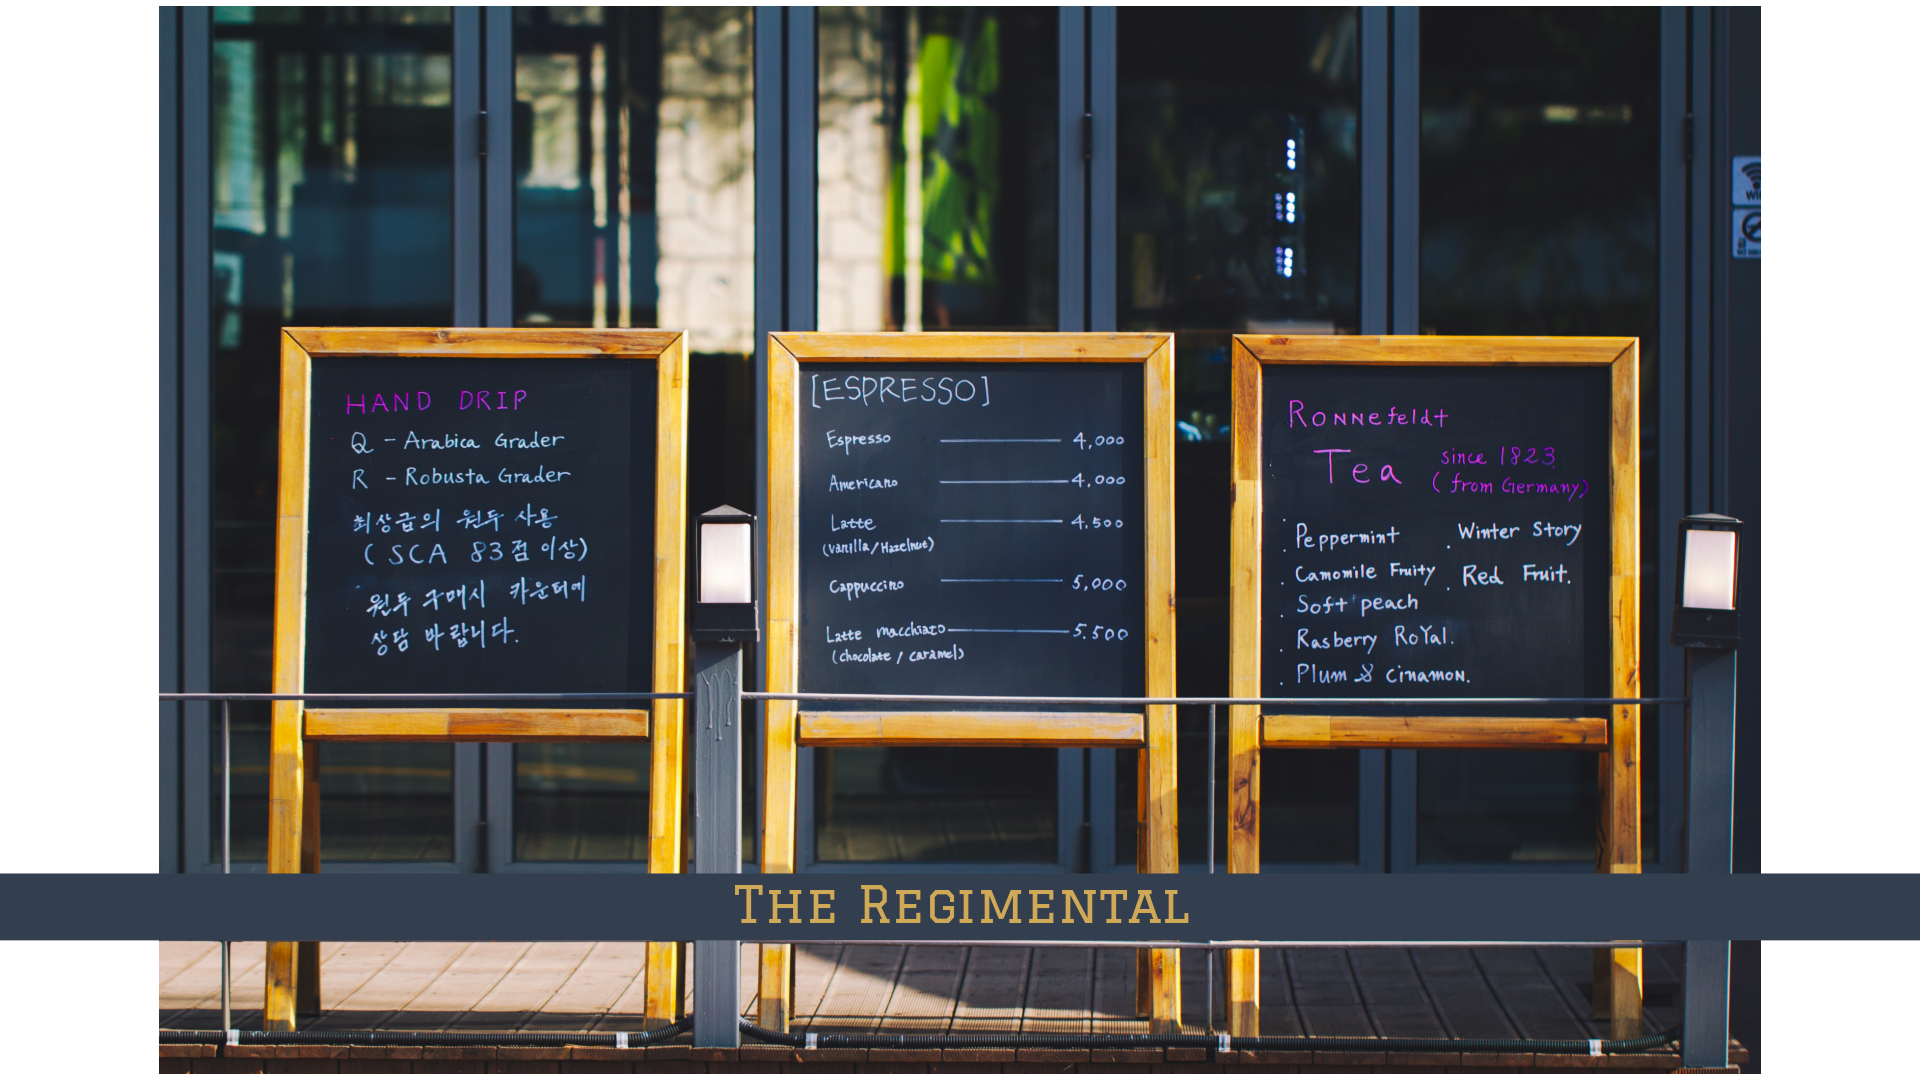 HAND DRIP
Q - Arabica Grader
R - Robusta Grader
최상급의 원두 사용
( SCA 83점 이상)
원두 구매시 카운터에
상담 바랍니다.
[ESPRESSO]
Espresso 4,000
Americano 4,000
Latte 4,500
(vanilla / Hazelnut)
Cappuccino 5,000
Latte macchiato 5,500
(chocolate / caramel)
RONNefeldt
Tea since 1823
(from Germany)
. Peppermint . Winter Story
. Camomile Fruity . Red Fruit.
. Soft peach
. Rasberry RoYal.
. Plum & cinamon.
THE REGIMENTAL